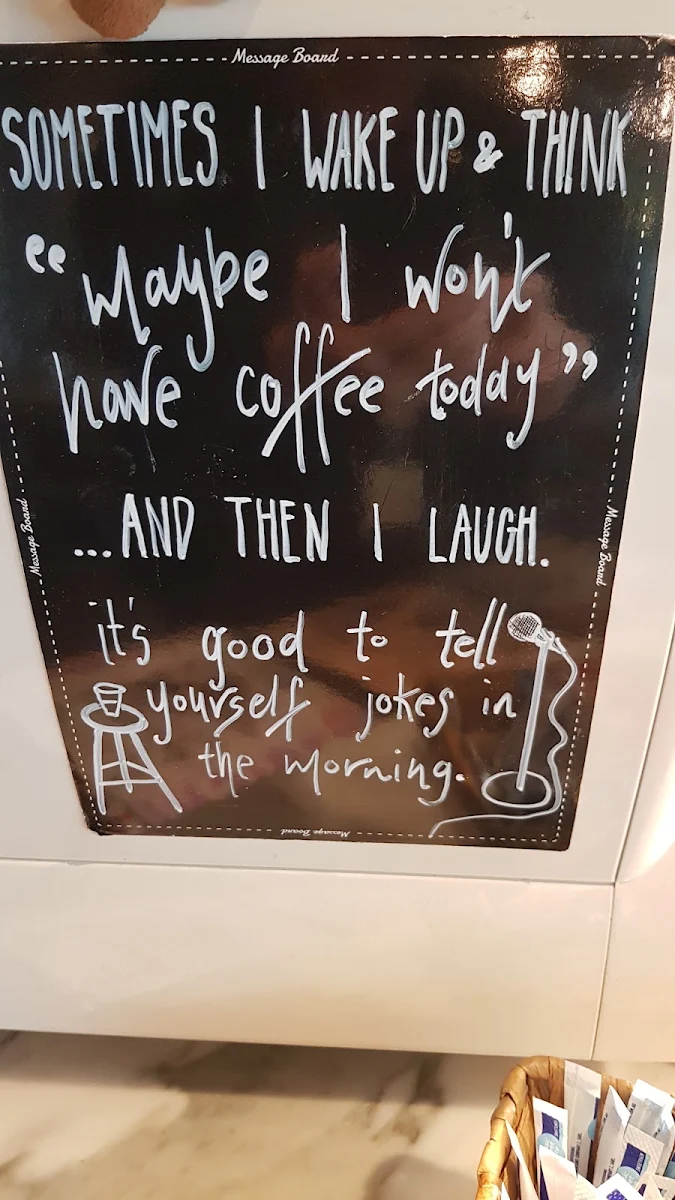 Message Board
SOMETIMES I WAKE UP & THINK
“Maybe I won't
have coffee today”
...AND THEN I LAUGH.
it's good to tell
yourself jokes in
the morning.
Message Board
Message Board
Message Board